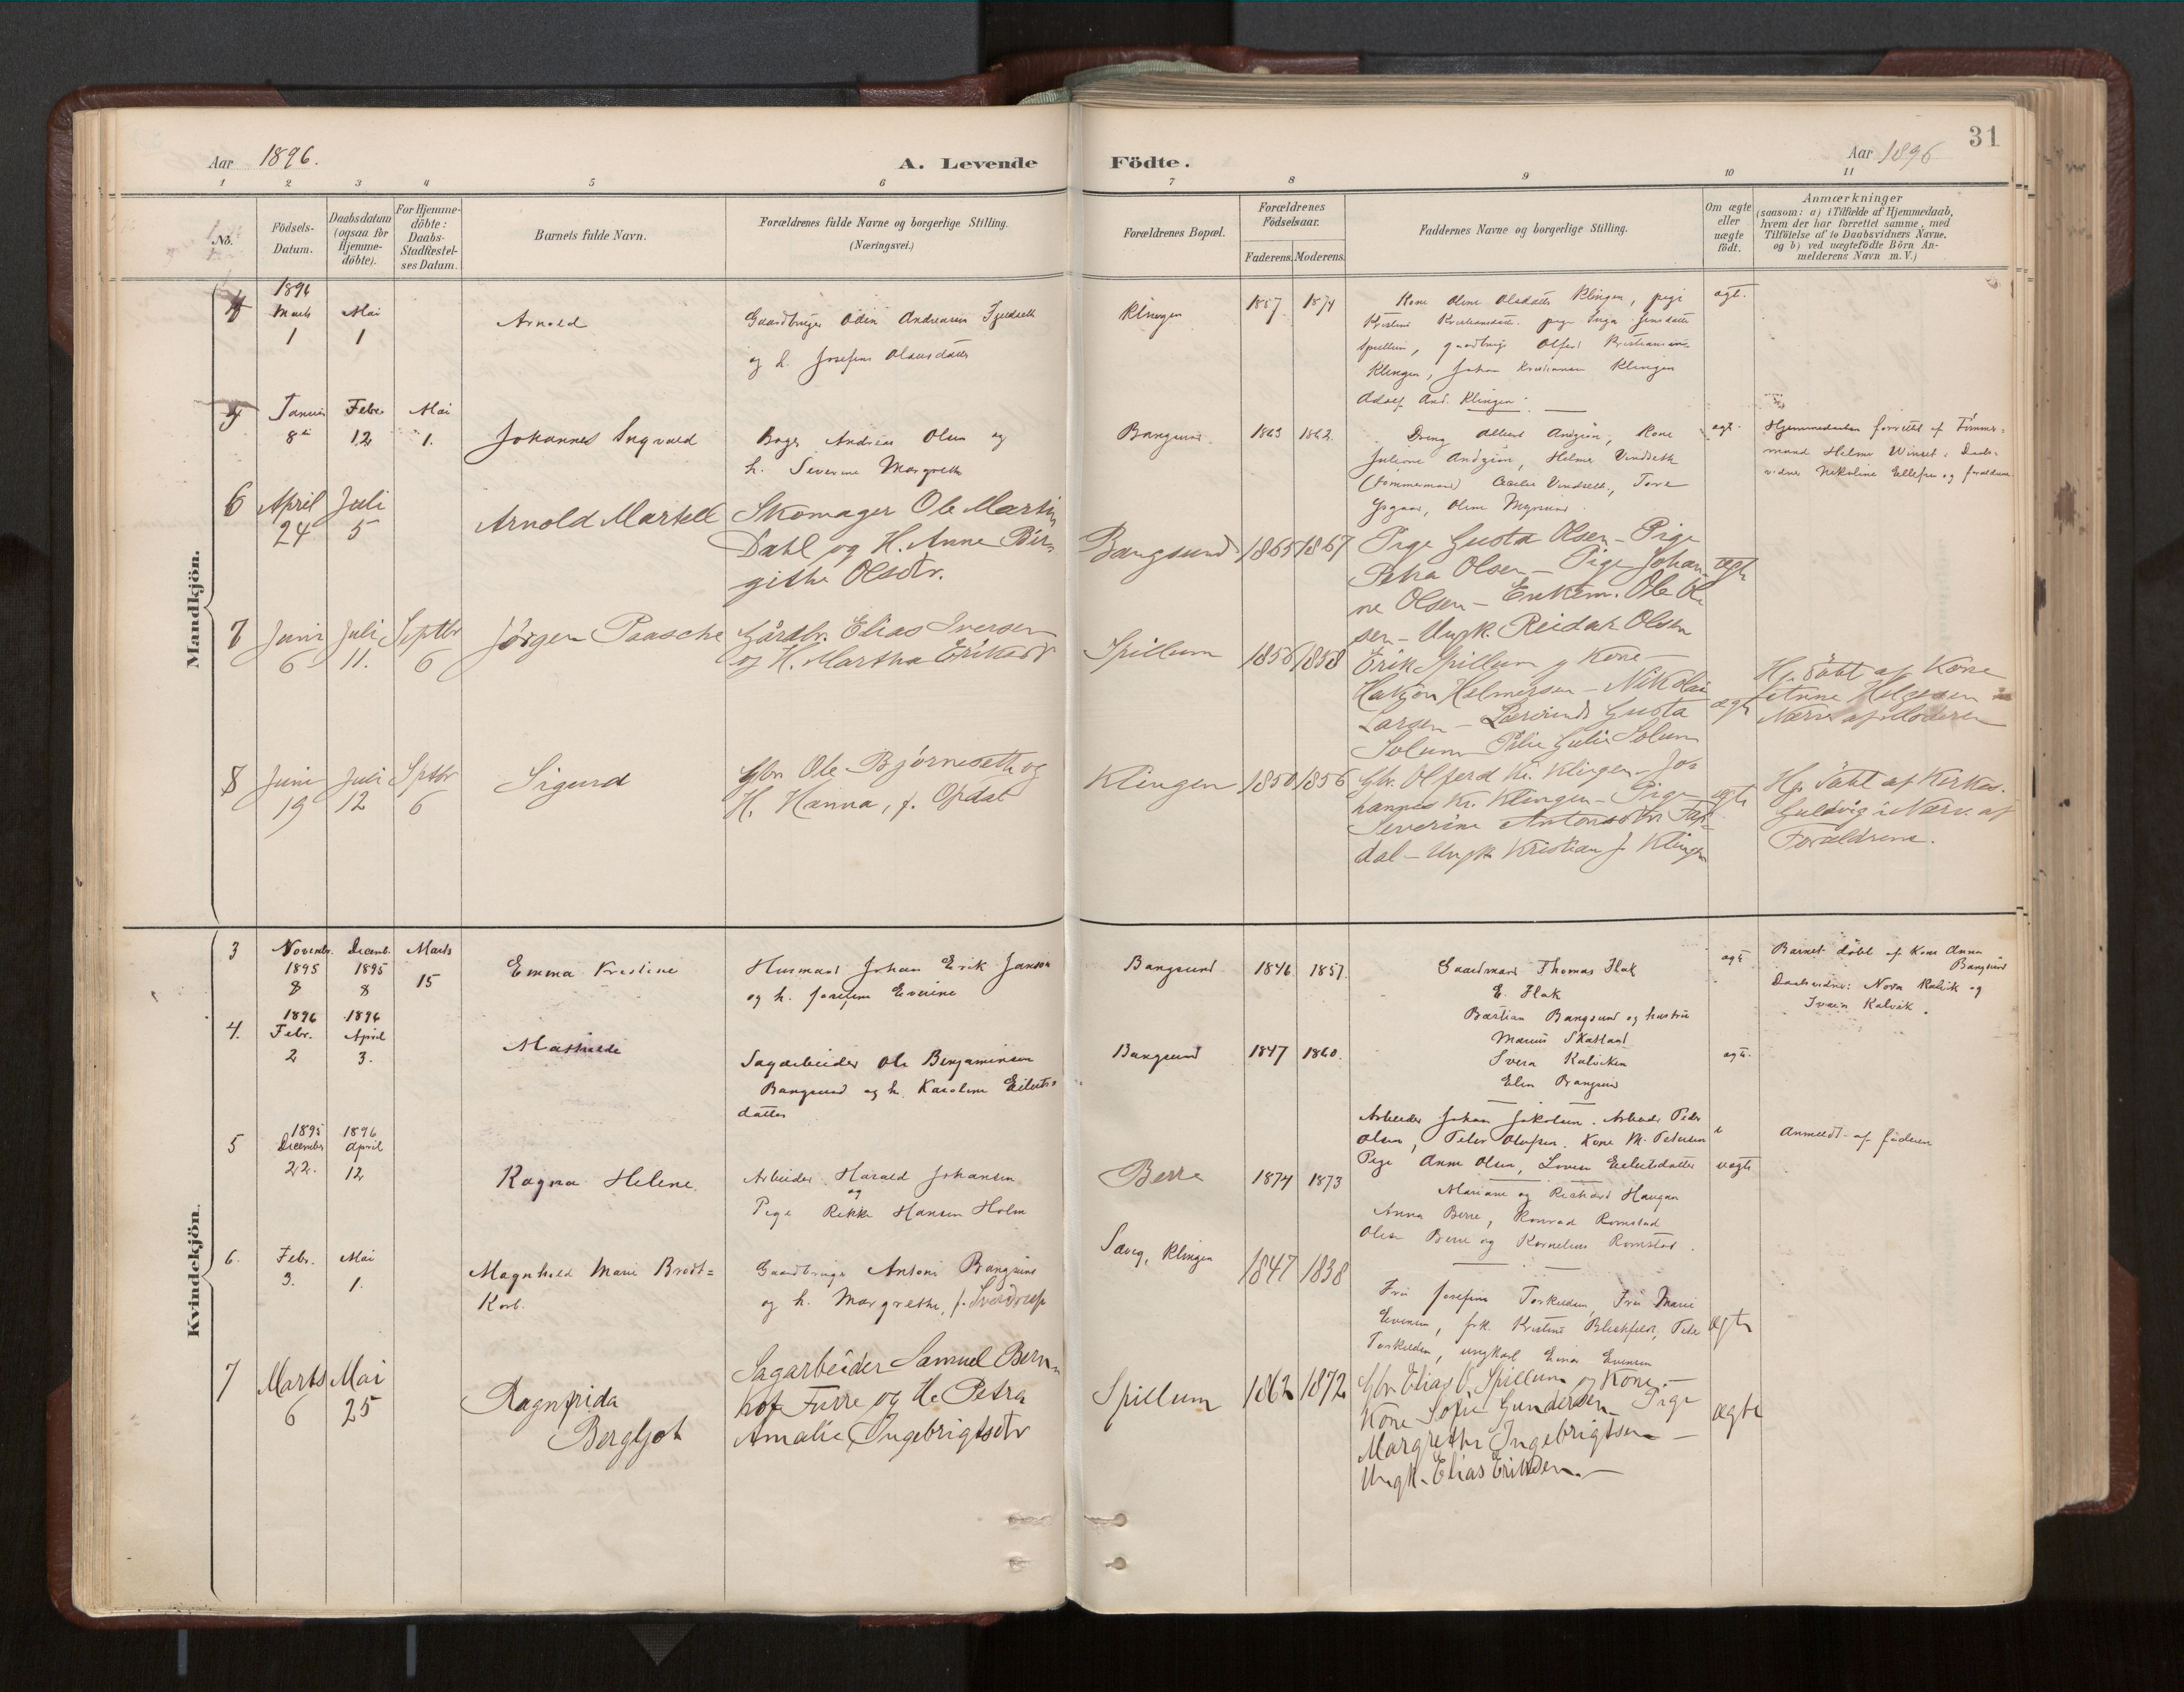 31
Aar 1896.
A. Levende
Födte.
Aar 1896
1 2 3 4 5 6 7 8 9 10 11
No.
Födsels-Datum.
Daabsdatum (ogsaa for Hjemme-döbte).
For Hjemme-döbte: Daabs-Stadfæstel-ses Datum.
Barnets fulde Navn.
Forældrenes fulde Navne og borgerlige Stilling. (Næringsvei.)
Forældrenes Bopæl.
Forældrenes Födselsaar.
Faderens. Moderens.
Faddernes Navne og borgerlige Stilling.
Om ægte eller uægte födt.
Anmærkninger
(saasom: a) i Tilfælde af Hjemmedaab,
hvem der har forrettet samme, med
Tilföielse af to Daabsvidners Navne,
og b) ved uægtefödte Börn An-
melderens Navn m. V.)
Mandkjön.
1896
Marts 1
Mai 1
Arnold
Gaardbruger Odin Andreasen Fjeldseth
og h. Josefine Olausdatter
Klingen
1867 1874
Kone Oline Olsdatter Klingen, pige
Kristine Kristiansdatter. pige Inga Jensdatter
Spillum, gaardbruger Olferd Kristiansen
Klingen, Johan Kristiansen Klingen
Adolf And. Klingen.
ægt.
Januar 8de
Febr. 12
Mai 1.
Johannes Ingvald
Bager Andreas Olsen og
h. Severine Margrethe
Bangsund.
1863 1862.
Dreng Albert Andzion, Kone
Juliane Andzion, Helmer Vindseth
(tømmermand) Cecilie Vindseth, Tora
Oline Myrsund.
ægt.
Hjemmedaaben forrettet af Tømmer-
mand Helmer Winset. Daabs-
vidner Nikoline Ellefsen og forældrene
6
April 24
Juli 5
Arnold Martell
Skomager Ole Martin
Dahl og H. Anne Bir-
githe Olsdtr.
Bangsund
1865 1867
Pige Gusta Olsen - Pige
Petra Olsen - Pige Johan-
ne Olsen - Enkem. Ole Ol-
sen - Ungk. Reidar Olsen
ægte
7
Juni 6
Juli 11.
Septbr 6
Jørgen Paasche
Gårdbr. Elias Iversen
og H. Martha Eriksdr
Spillum
1856 1858
Erik Spillum og Kone -
Hakon Helmersen - Nikolai
Larsen - Gusta
Solum - Julie Solum
ægte
Hj. døbt af Kone
Anne Helgesen i
Nærv. af Moderen
8
Juni 19
Juli 12
Sptbr 6
Sigurd
Gbr. Ole Bjørneseth og
H. Hanna, f. Opdal
Klingen
1850 1856
Gbr. Olferd Kr. Klingen - Jo-
hannes Kr. Klingen - Pige
Severine Antonsdtr
dal - Ungk Kristian J. Klingen
ægte
Hj. døbt af Kirkes.
Guldvig i Nærv. af
Forældrene.
Kvindekjön.
3
Novembr. 1895 8
Decemb. 1895 8
Marts 15
Emma Kristine
Husmand Johan Erik Jansen
og h. Josefine Everine
Bangsund
1846 1857.
Gaardmand Thomas Hak
E. Hak
Bastian Bangsund og hustru
Marius Skatland
Svera Kalviken
Elen Bangsund
ægt.
Barnet døbt af Kone Anna
Bangsund
Daabsvidner: Nora Kalvik og
Kalvik.
4.
1896 Febr. 2
1896 April 3.
Mathilde
Sagarbeider Ole Benjaminsen
Bangsund og h. Karoline Eilerts-
datter
Bangsund
1847 1860.
Arbeider Johan Jakobsen. Arbeider Peder
Olsen, Peter Olufsen. Kone M. Petersen
Pige Anne Olsen, Lovise Eilertsdatter
ægt.
5
1895 December 22.
1896 April 12
Ragna Helene
Arbeider Harald Johansen
og
Pige Rikke Hansen Holm
Berre
1874 1873
Mariane og Richard Haugan
Anna Berre, Konrad Romstad
Olise Berre og Kornelius Romstad.
uægte
Anmeldt af faderen
6.
Febr. 3.
Mai 1.
Magnhild Marie Brodt=
Korb.
Gaardbruger Antoni Bangsund
og h. Margrethe, f. Sverdrup
Klingen
1847 1838
Fru Josefine Torkildsen, Fru Marie
Evensen, frk. Kristine Blickfeldt, Peder
Torkildsen, ungkarl Einar Evensen
ægte
7
Marts 6
Mai 25
Ragnfrida
Bergljot
Sagarbeider Samuel Bern-
hof Furre og H. Petra
Amalie Ingebrigtsdtr
Spillum
1862 1872
Gbr. Elias O. Spillum og Kone. -
Kone Sofie Gundersen - Pige
Margrethe Ingebrigtsen -
Ungk. Elias Eriksen. -
ægte